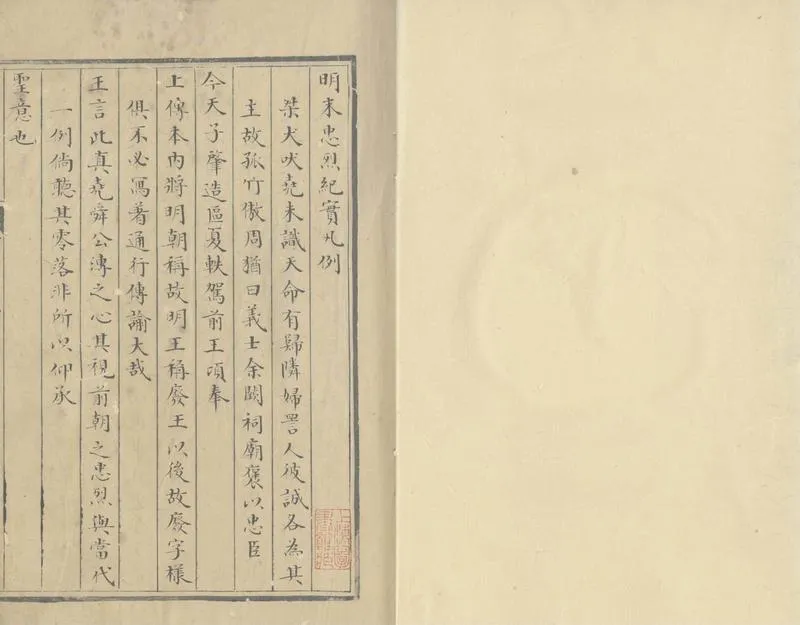 明末忠烈紀實凡例
桀犬吠堯未識天命有歸隣婦詈人彼誠各為其
主故孤竹傲周猶曰義士余闕祠廟褒以忠臣
今天子肇造區夏軼駕前王頃奉
上傳本內將明朝稱故明王稱廢王以後故廢字樣
俱不必寫著通行傳諭大哉
王言此真堯舜公溥之心其視前朝之忠烈與當代
一例倘聽其零落非所以仰承
聖意也